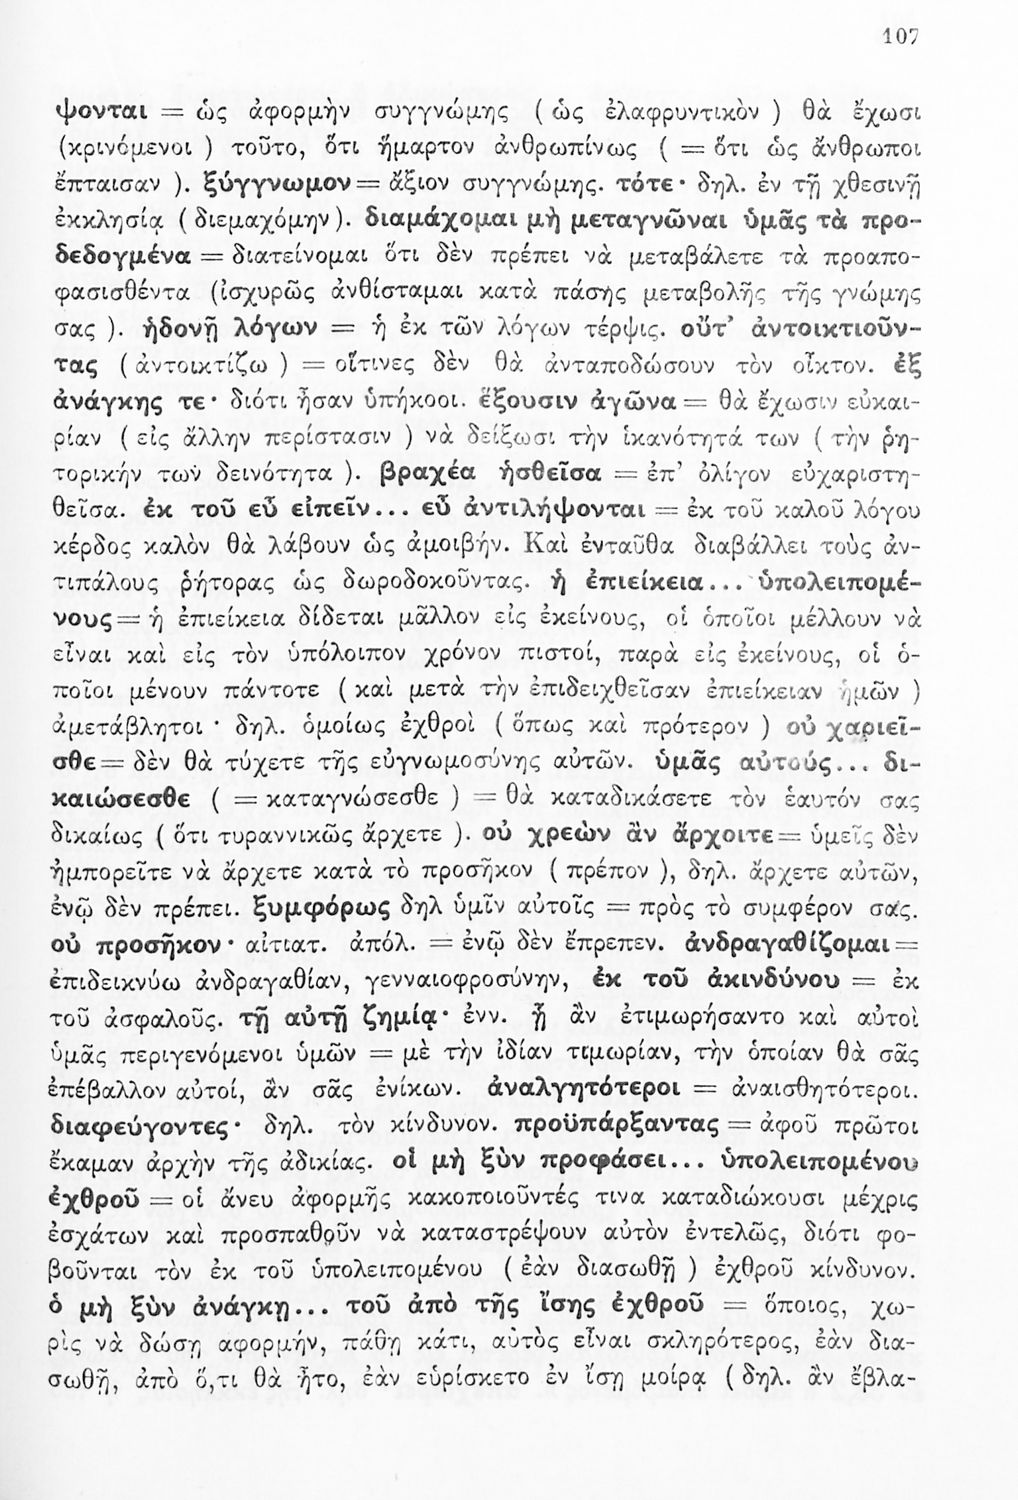 107
ψονται = ὡς ἀφορμὴν συγγνώμης ( ὡς ἐλαφρυντικὸν ) θὰ ἔχωσι
(κρινόμενοι ) τοῦτο, ὅτι ἥμαρτον ἀνθρωπίνως ( = ὅτι ὡς ἄνθρωποι
ἔπταισαν ). ξύγγνωμον = ἄξιον συγγνώμης. τότε· δηλ. ἐν τῇ χθεσινῇ
ἐκκλησίᾳ ( διεμαχόμην). διαμάχομαι μὴ μεταγνῶναι ὑμᾶς τὰ προ-
δεδογμένα = διατείνομαι ὅτι δὲν πρέπει νὰ μεταβάλετε τὰ προαπο-
φασισθέντα (ἰσχυρῶς ἀνθίσταμαι κατὰ πάσης μεταβολῆς τῆς γνώμης
σας ). ἡδονῇ λόγων = ἡ ἐκ τῶν λόγων τέρψις. οὔτ’ ἀντοικτιοῦν-
τας ( ἀντοικτίζω ) = οἵτινες δὲν θὰ ἀνταποδώσουν τὸν οἶκτον. ἐξ
ἀνάγκης τε· διότι ἦσαν ὑπήκοοι. ἕξουσιν ἀγῶνα = θὰ ἔχωσιν εὐκαι-
ρίαν ( εἰς ἄλλην περίστασιν ) νὰ δείξωσι τὴν ἱκανότητά των ( τὴν ῥη-
τορικήν των δεινότητα ). βραχέα ἡσθεῖσα = ἐπ’ ὀλίγον εὐχαριστη-
θεῖσα. ἐκ τοῦ εὖ εἰπεῖν... εὖ ἀντιλήψονται = ἐκ τοῦ καλοῦ λόγου
κέρδος καλὸν θὰ λάβουν ὡς ἀμοιβήν. Καὶ ἐνταῦθα διαβάλλει τοὺς ἀν-
τιπάλους ῥήτορας ὡς δωροδοκοῦντας. ἡ ἐπιείκεια... ὑπολειπομέ-
νους = ἡ ἐπιείκεια δίδεται μᾶλλον εἰς ἐκείνους, οἱ ὁποῖοι μέλλουν νὰ
εἶναι καὶ εἰς τὸν ὑπόλοιπον χρόνον πιστοί, παρὰ εἰς ἐκείνους, οἱ ὁ-
ποῖοι μένουν πάντοτε ( καὶ μετὰ τὴν ἐπιδειχθεῖσαν ἐπιείκειαν ἡμῶν )
ἀμετάβλητοι · δηλ. ὁμοίως ἐχθροὶ ( ὅπως καὶ πρότερον ) οὐ χαριεῖ-
σθε = δὲν θὰ τύχετε τῆς εὐγνωμοσύνης αὐτῶν. ὑμᾶς αὐτούς... δι-
καιώσεσθε ( = καταγνώσεσθε ) = θὰ καταδικάσετε τὸν ἑαυτόν σας
δικαίως ( ὅτι τυραννικῶς ἄρχετε ). οὐ χρεὼν ἂν ἄρχοιτε = ὑμεῖς δὲν
ἠμπορεῖτε νὰ ἄρχετε κατὰ τὸ προσῆκον ( πρέπον ), δηλ. ἄρχετε αὐτῶν,
ἐνῷ δὲν πρέπει. ξυμφόρως δηλ ὑμῖν αὐτοῖς = πρὸς τὸ συμφέρον σας.
οὐ προσῆκον· αἰτιατ. ἀπόλ. = ἐνῷ δὲν ἔπρεπεν. ἀνδραγαθίζομαι =
ἐπιδεικνύω ἀνδραγαθίαν, γενναιοφροσύνην, ἐκ τοῦ ἀκινδύνου = ἐκ
τοῦ ἀσφαλοῦς. τῇ αὐτῇ ζημίᾳ· ἐνν. ᾗ ἂν ἐτιμωρήσαντο καὶ αὐτοὶ
ὑμᾶς περιγενόμενοι ὑμῶν = μὲ τὴν ἰδίαν τιμωρίαν, τὴν ὁποίαν θὰ σᾶς
ἐπέβαλλον αὐτοί, ἂν σᾶς ἐνίκων. ἀναλγητότεροι = ἀναισθητότεροι.
διαφεύγοντες· δηλ. τὸν κίνδυνον. προϋπάρξαντας = ἀφοῦ πρῶτοι
ἔκαμαν ἀρχὴν τῆς ἀδικίας. οἱ μὴ ξὺν προφάσει... ὑπολειπομένου
ἐχθροῦ = οἱ ἄνευ ἀφορμῆς κακοποιοῦντές τινα καταδιώκουσι μέχρις
ἐσχάτων καὶ προσπαθοῦν νὰ καταστρέψουν αὐτὸν ἐντελῶς, διότι φο-
βοῦνται τὸν ἐκ τοῦ ὑπολειπομένου ( ἐὰν διασωθῇ ) ἐχθροῦ κίνδυνον.
ὁ μὴ ξὺν ἀνάγκῃ... τοῦ ἀπὸ τῆς ἴσης ἐχθροῦ = ὅποιος, χω-
ρὶς νὰ δώσῃ αφορμήν, πάθῃ κάτι, αὐτὸς εἶναι σκληρότερος, ἐὰν δια-
σωθῇ, ἀπὸ ὅ,τι θὰ ἦτο, ἐὰν εὑρίσκετο ἐν ἴσῃ μοίρᾳ ( δηλ. ἂν ἔβλα-